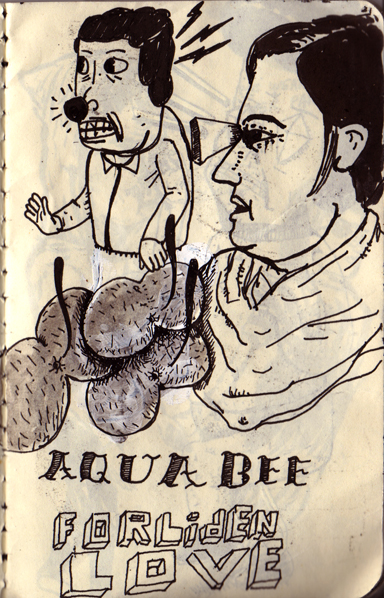 AQUA BEE
FORLiDEN
LOVE